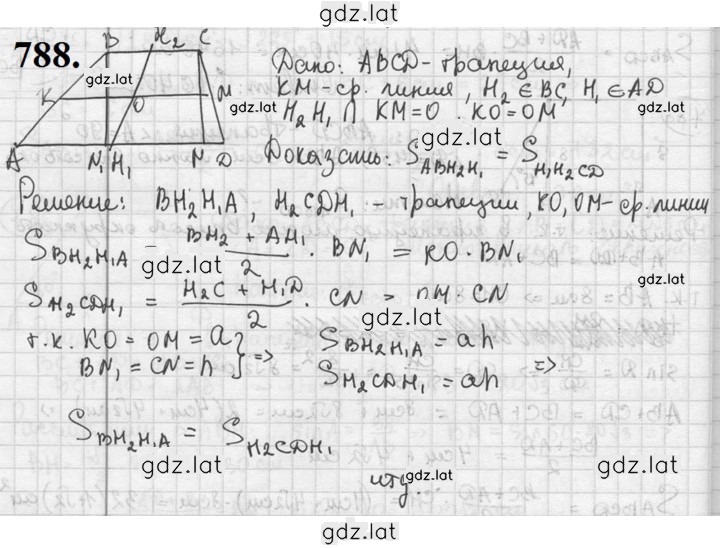 gdz.lat
788.
B H₂ C
gdz.lat
K O M
A N₁ H₁ N D
Дано: ABCD - трапеция,
KM - ср. линия, H₂ ∈ BC, H₁ ∈ AD
gdz.lat
H₂H₁ ∩ KM = O . KO = OM
gdz.lat
Доказать: S_ABH₂H₁ = S_H₁H₂CD
gdz.lat
Решение: BH₂H₁A, H₂CDH₁ - трапеции, KO, OM - ср. линии
S_BH₂H₁A = (BH₂ + AH₁)/2 · BN₁ = KO · BN₁
gdz.lat
gdz.lat
S_H₂CDH₁ = (H₂C + H₁D)/2 · CN = ПМ · CN
gdz.lat
т.к. KO = OM = a
BN₁ = CN = h } =>
S_BH₂H₁A = ah
S_H₂CDH₁ = ah =>
gdz.lat
S_BH₂H₁A = S_H₂CDH₁
gdz.lat
gdz.lat
gdz.lat
чтд.
gdz.lat